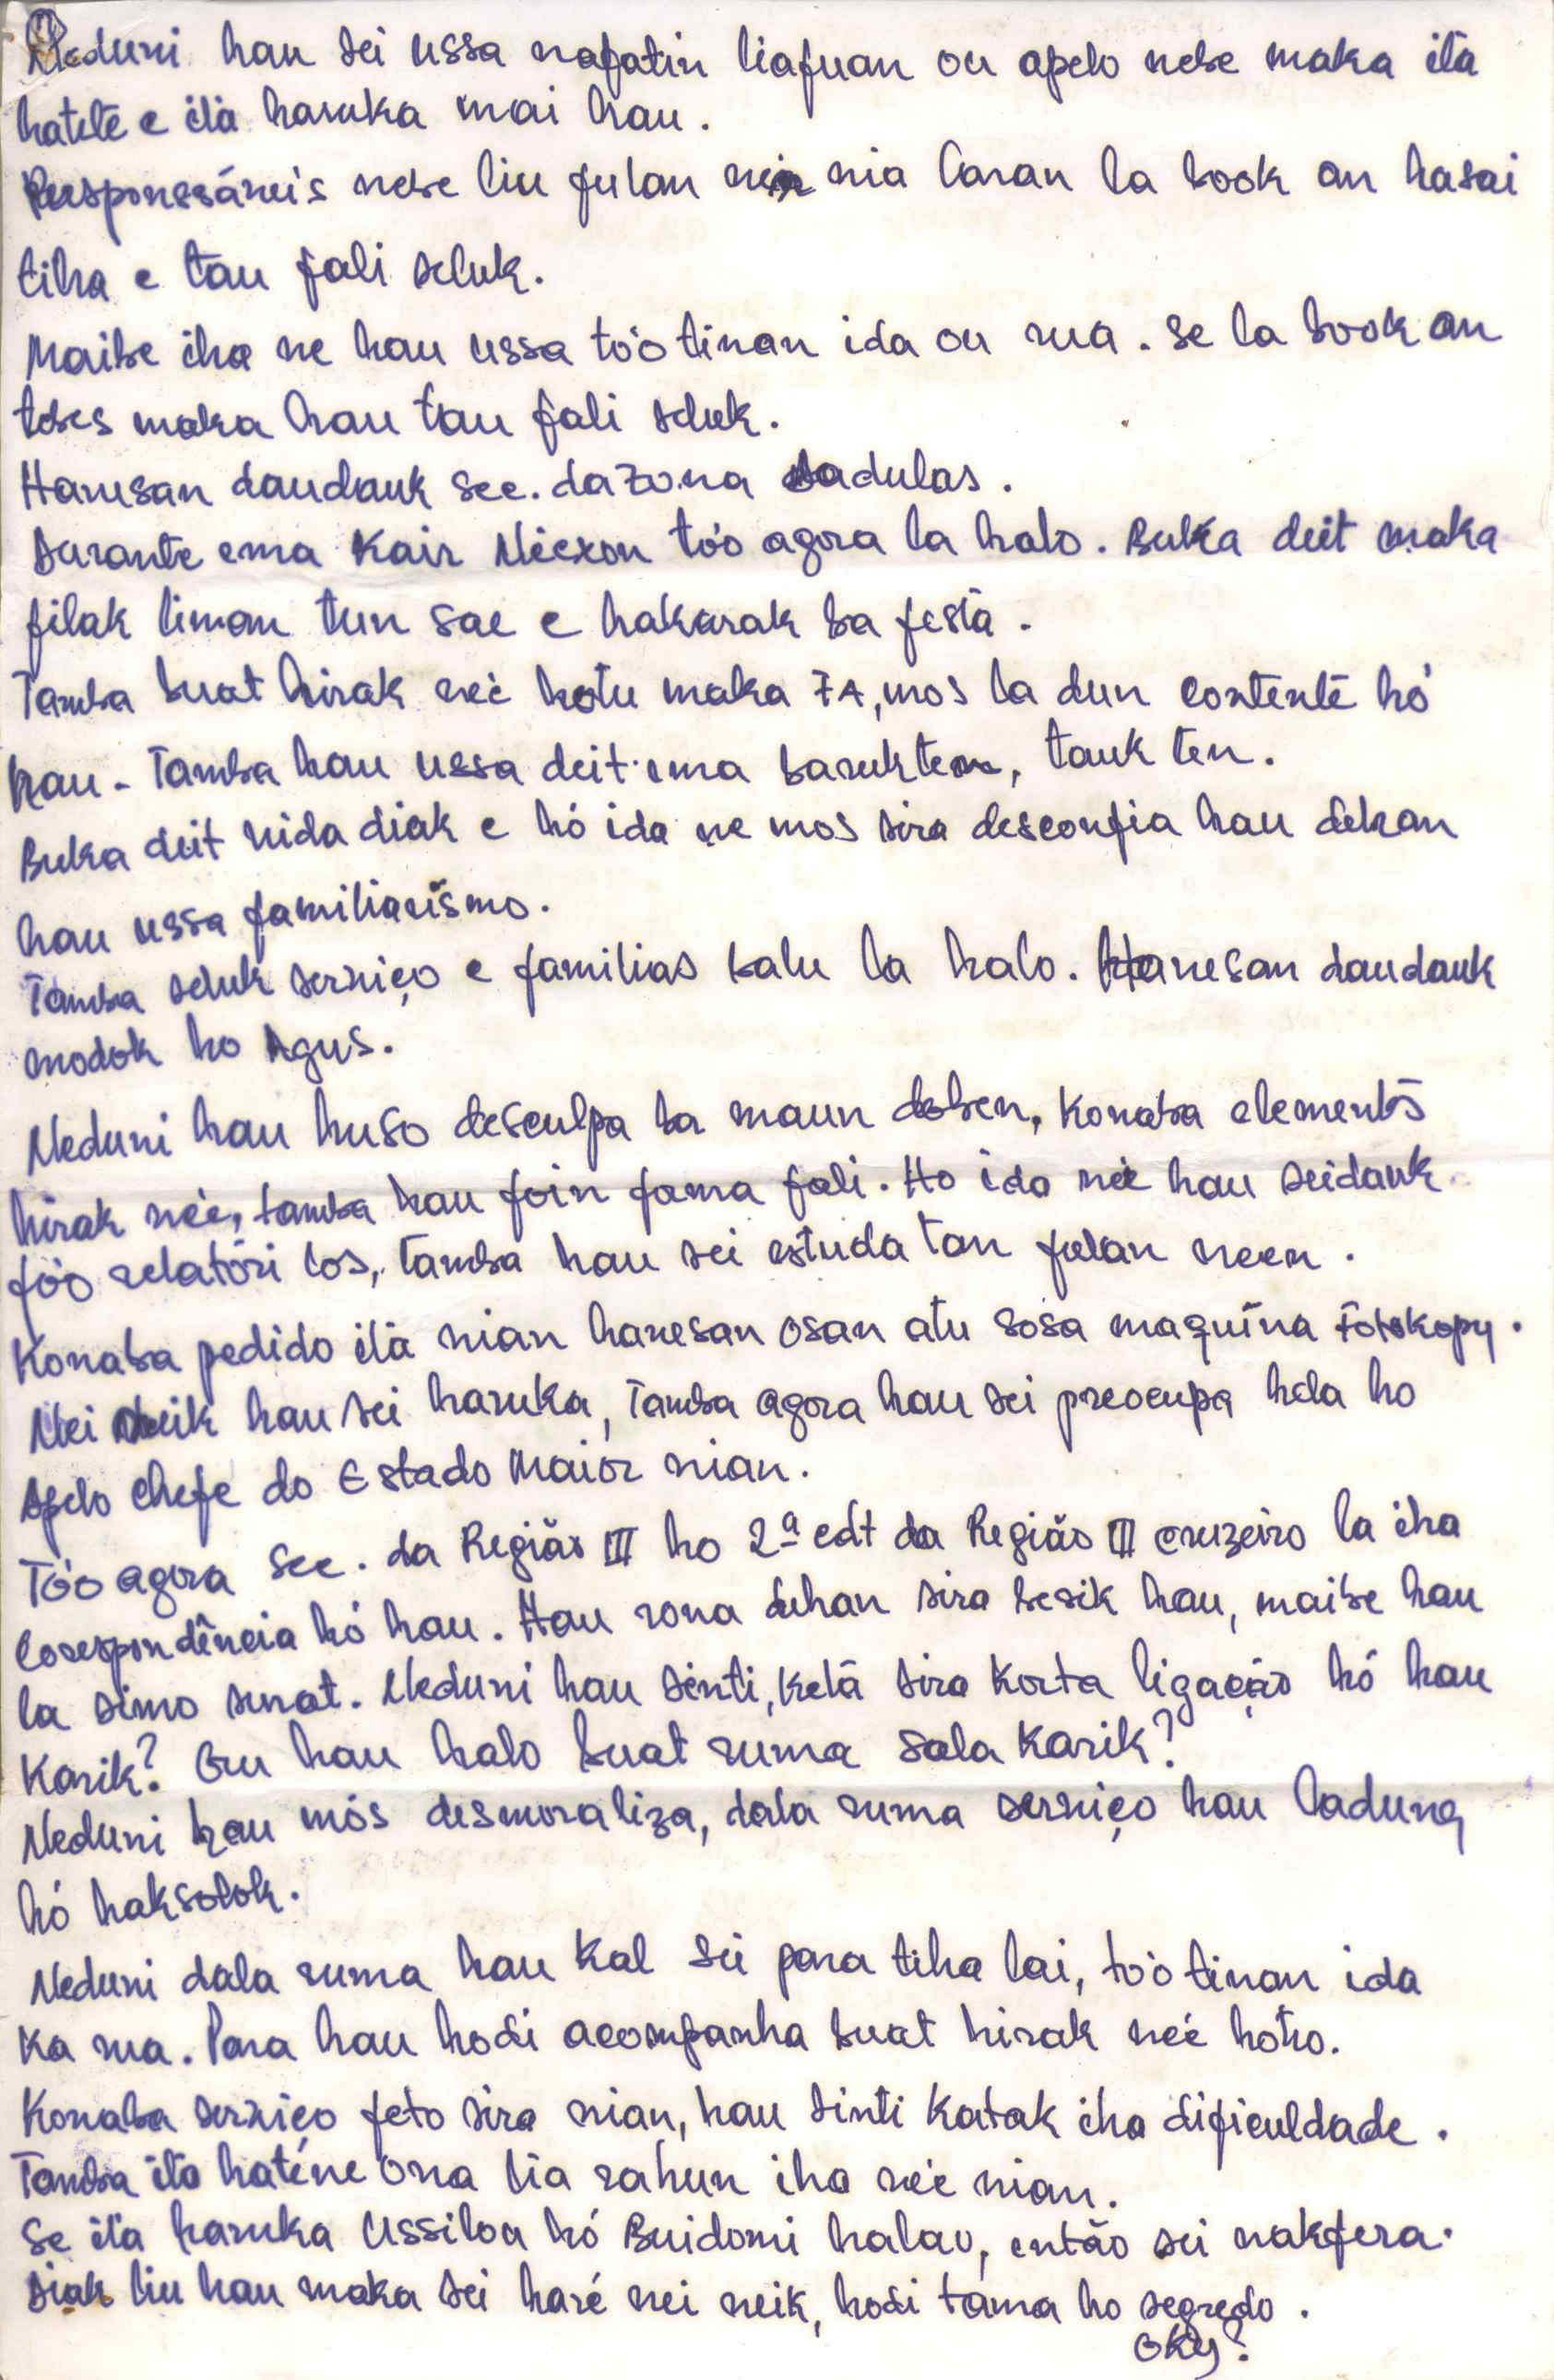 Neduni hau sei ussa nafatin liafuan ou apelo nebe maka ita
hatete e ita haruka mai hau.
Responssáveis nebe liu fulan nen nia laran la book an hasai
tiha e tau fali seluk.
Maibe iha ne hau ussa to'o tinan ida ou rua. Se la book an
tebes maka hau tau fali seluk.
Hanesan daudauk sec. da Zona Sadulas.
Durante ema Kair Nicxon to'o agora la halo. Buka deit maka
filak liman tun sae e hakarak ba festa.
Tamba buat hirak neé hotu maka 7A, mos la dun contente hó
hau - Tamba hau ussa deit ema baruk ten, tauk ten.
Buka deit vida diak e hó ida ne mos sira desconfia hau dehan
hau ussa familiarismo.
Tamba seluk serviço e familias balu la halo. Hanesan daudauk
modok ho Agus.
Neduni hau huso desculpa ba maun doben, Konaba elementos
hirak neé, tamba hau foin foma fali. Ho ida neé hau seidauk
fó'o relatóri los, tamba hau sei estuda tan fulan neen.
Konaba pedido ita nian hanesan osan atu sosa maquina fotokopy.
Nei Neik hau sei haruka, Tamba agora hau sei preocupa hela ho
Apelo Chefe do Estado Maior nian.
To'o agora Sec. da Região III ho 2ª cdt da Região III cruzeiro la iha
Corespondência hó hau. Hau rona dehan sira besik hau, maibe hau
la simo surat. Neduni hau sinti, Ketá sira Korta ligação hó hau
Karik? Ou hau halo buat ruma sala Karik?
Neduni hau mós desmoraliza, dala ruma serviço hau ladung
hó haksolok.
Neduni dala ruma hau Kal sei para tiha lai, to'o tinan ida
Ka rua. Para hau hodi acompanha buat hirak neé hoto.
Konaba serviço feto sira nian, hau sinti Katak iha dificuldade.
Tamba ita haténe ona lia rahun iha neé nian.
Se ita haruka Ussiloa hó Buidomi halao, então sei nakfera.
Diak liu hau maka sei haré nei neik, hodi táma ho segredo.
Oky?